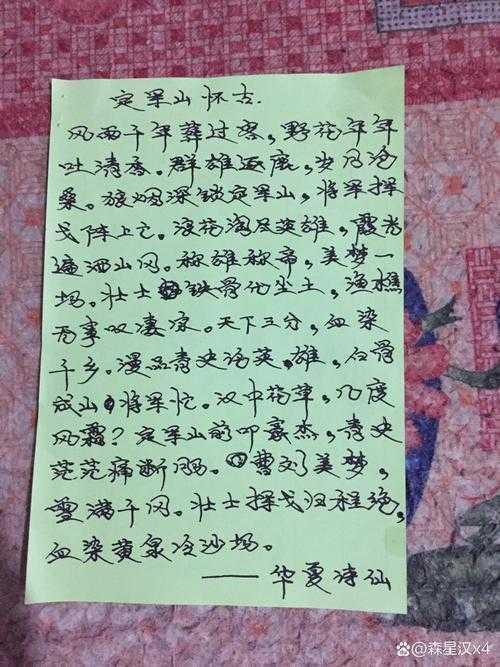 定军山怀古.
风雨千年葬过客，野花年年
吐清香。群雄逐鹿，岁月沧
桑。狼烟深锁定军山，将军探
戈阵上亡。浪花淘尽英雄，霞光
遍洒山冈。称雄称帝，美梦一
场。壮士铁骨化尘土，渔樵
闲事叹凄凉。天下三分，血染
千乡。漫品青史论英雄，白骨
成山将军忙。汉中花草，几度
风霜？定军山前叩豪杰，青史
茫茫痛断肠。曹刘美梦，
雪满千冈。壮士探戈归程绝，
血染黄泉冷沙场。
——华夏诗仙
Bai百度 @森星汉x4